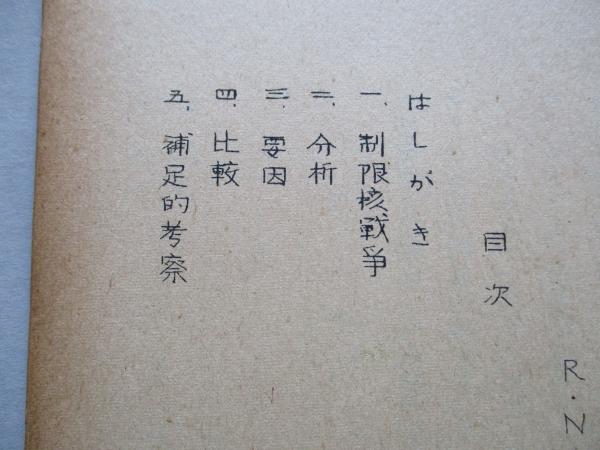 R.N
目次
はしがき
一、制限核戦争
二、分析
三、要因
四、比較
五、補足的考察